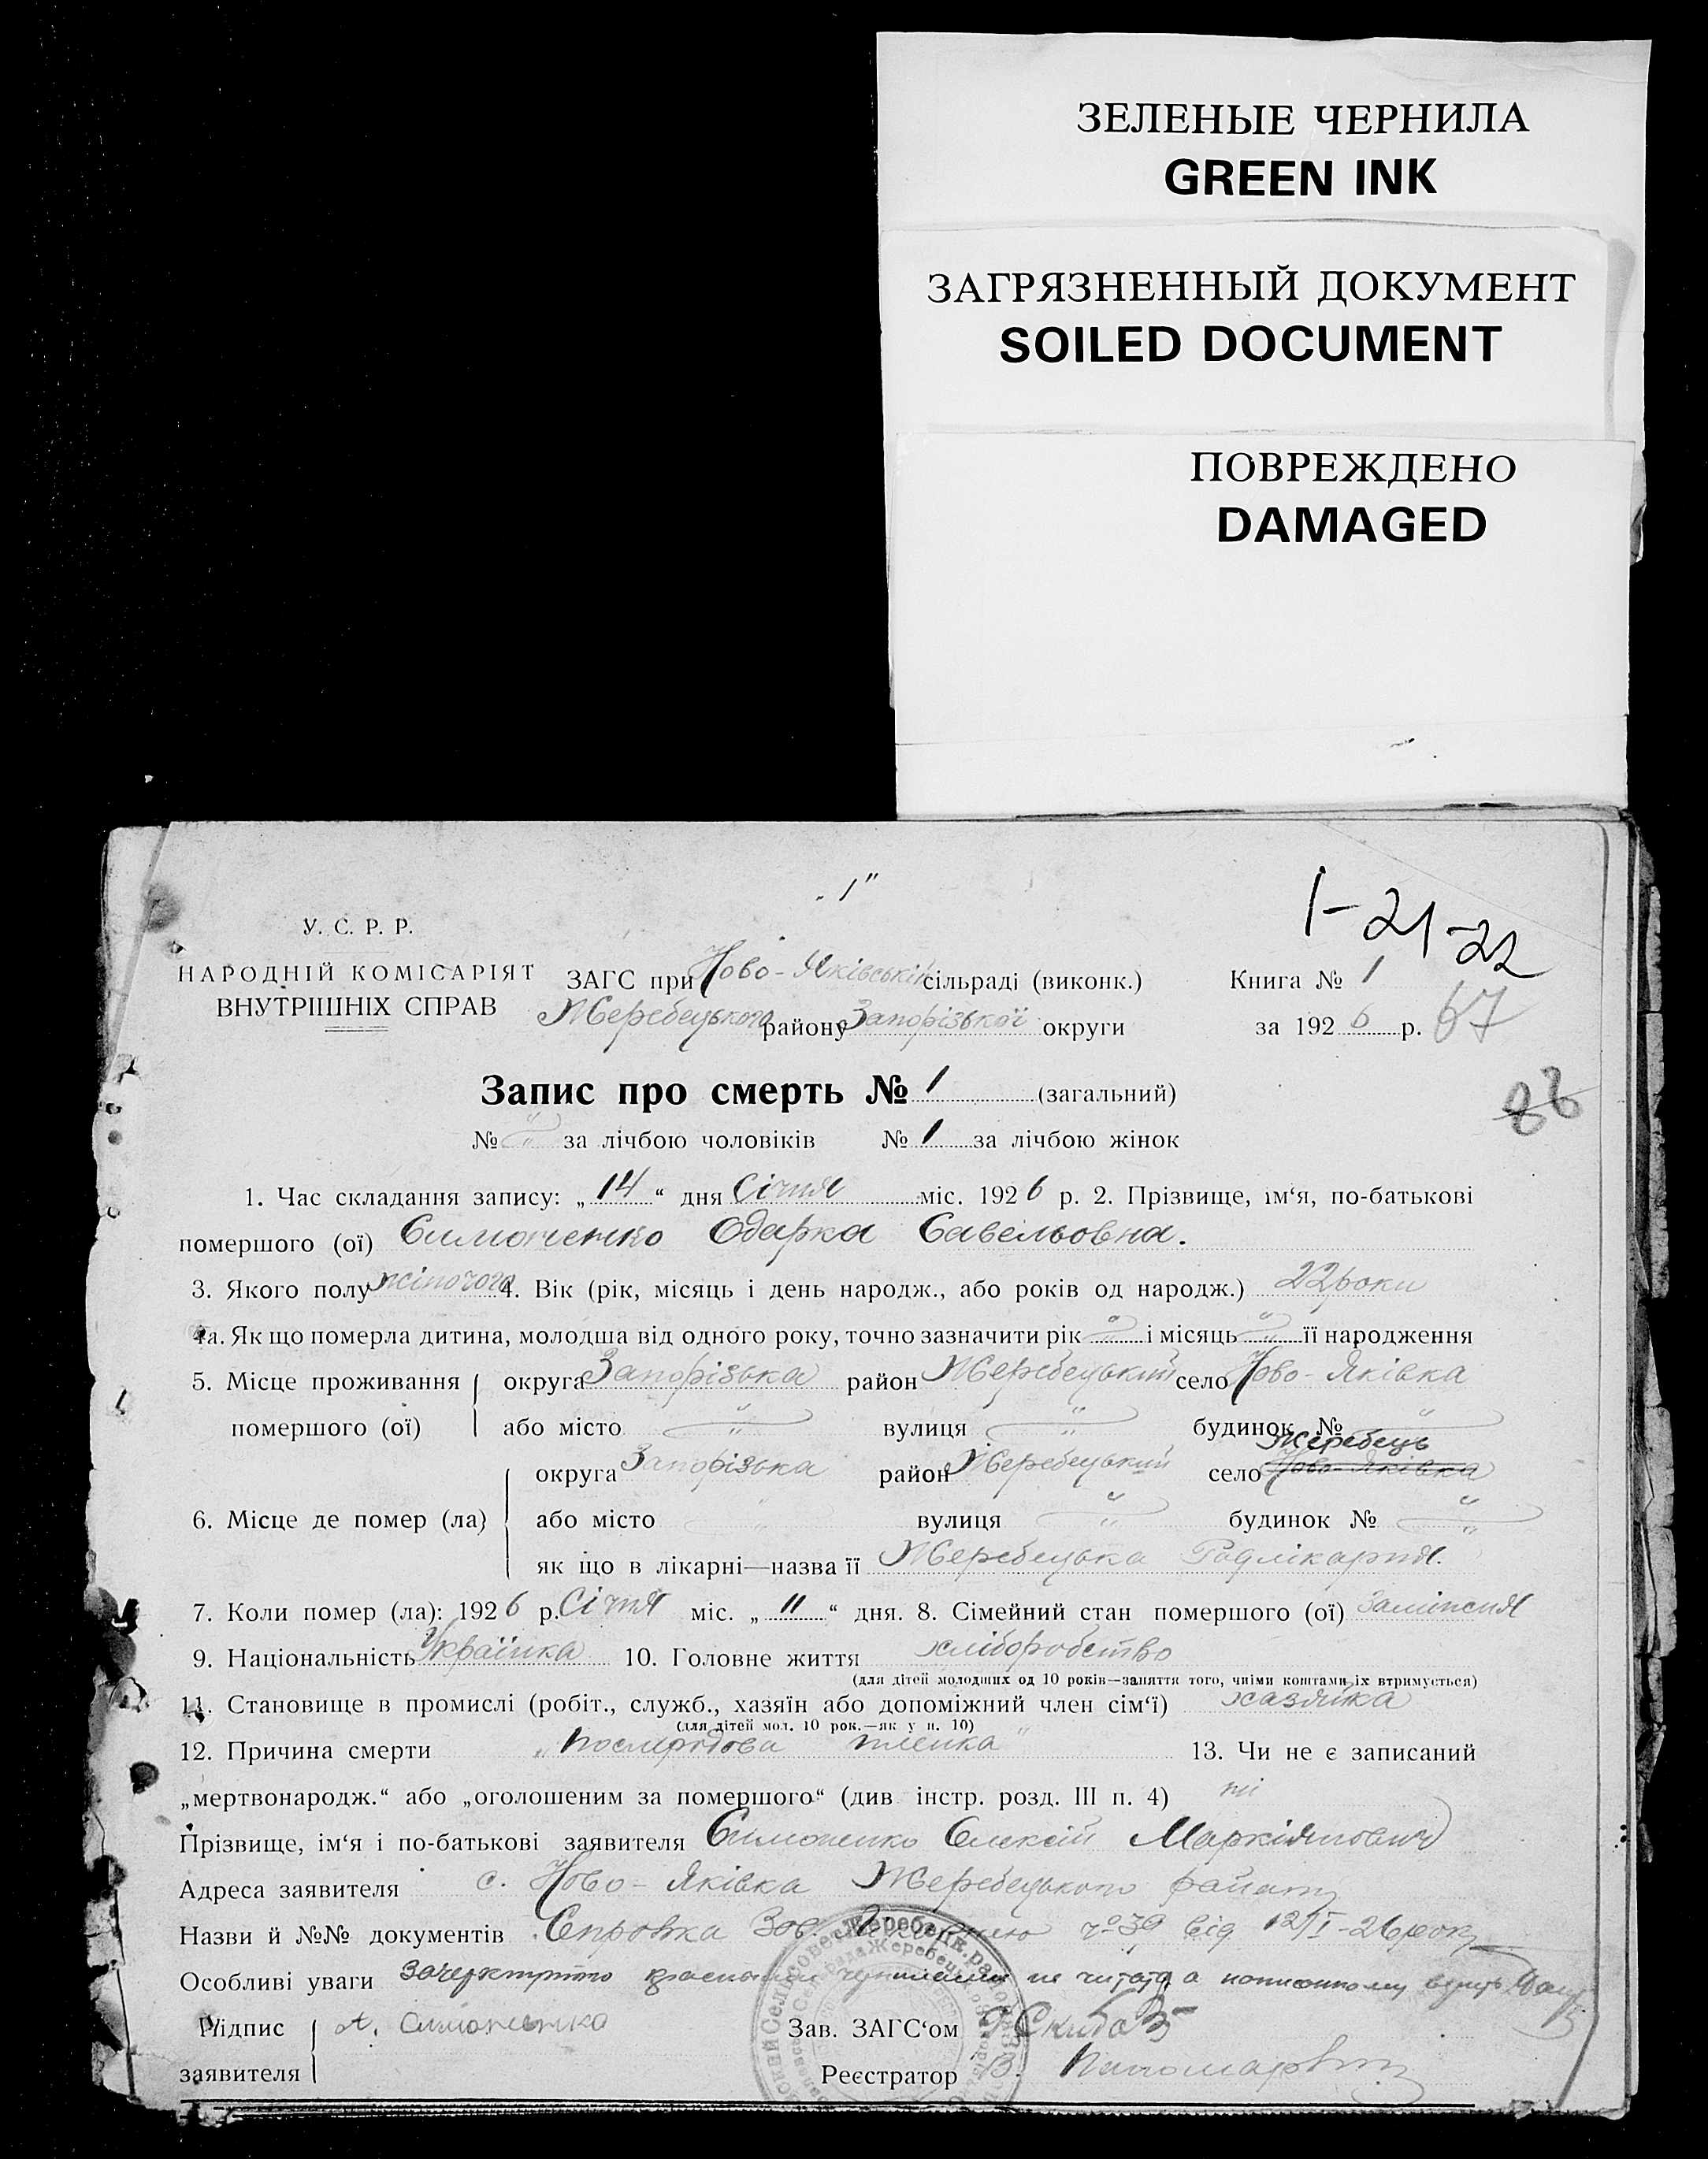 ЗЕЛЕНЫЕ ЧЕРНИЛА
GREEN INK
ЗАГРЯЗНЕННЫЙ ДОКУМЕНТ
SOILED DOCUMENT
ПОВРЕЖДЕНО
DAMAGED
„1"
1-21-22
У. С. Р. Р.
НАРОДНІЙ КОМІСАРІЯТ
ВНУТРІШНІХ СПРАВ
ЗАГС при Ново-Яківській сільраді (виконк.) Книга № 1
Жеребецького району Запорізької округи за 1926 р. 67
Запис про смерть № 1 (загальний)
88
№ " за лічбою чоловіків № 1 за лічбою жінок
1. Час складання запису: „14“ дня Січня міс. 1926 р. 2. Прізвище, ім‘я, по-батькові
помершого (ої) Симоненко Одарка Савельовна.
3. Якого полу жіночого 4. Вік (рік, місяць і день народж., або років од народж.) 22 роки
4а. Як що померла дитина, молодша від одного року, точно зазначити рік " і місяць " її народження
5. Місце проживання помершого (ої) округа Запорізька район Жеребецький село Ново-Яківка
або місто " вулиця " будинок № "
Жеребець
округа Запорізька район Жеребецький село Ново-Яківка
6. Місце де помер (ла) або місто " вулиця " будинок № "
як що в лікарні—назва її Жеребецька Радлікарня.
7. Коли помер (ла): 1926 р. Січня міс. „11“ дня. 8. Сімейний стан помершого (ої) Заміжня
9. Національність Українка 10. Головне життя хліборобство
(для дітей молодших од 10 років—заняття того, чиїми коштами їх втримується)
11. Становище в промислі (робіт., служб., хазяїн або допоміжний член сім‘ї) хазяйка
(для дітей мол. 10 рок.—як у п. 10)
12. Причина смерти 13. Чи не є записаний
„мертвонародж.“ або „оголошеним за помершого“ (див інстр. розд. III п. 4) ні
Прізвище, ім‘я і по-батькові заявителя Симоненко Олексій Маркіянович
Адреса заявителя с. Ново-Яківка Жеребецького району
Назви й №№ документів Справка Зав. № 39 від 12/I-26 року
Особливі уваги не читать а написаному
Підпис заявителя А. Симоненко Зав. ЗАГС‘ом Скиба
Реєстратор В. Пономар